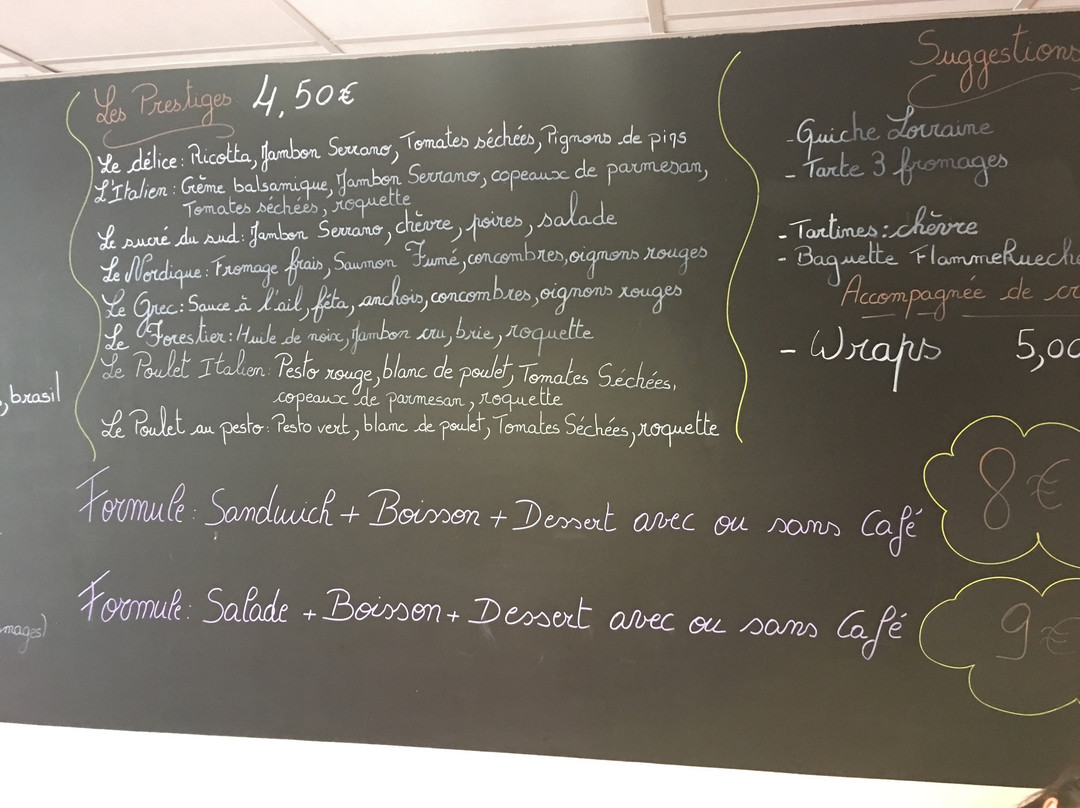 Les Prestiges 4,50€
Le délice: Ricotta, Jambon Serrano, Tomates séchées, Pignons de pins
L'Italien: Crème balsamique, Jambon Serrano, copeaux de parmesan,
Tomates séchées, roquette
Le sucré du sud: Jambon Serrano, chèvre, poires, salade
Le Nordique: Fromage frais, Saumon Fumé, concombres, oignons rouges
Le Grec: Sauce à l'ail, féta, anchois, concombres, oignons rouges
Le Forestier: Huile de noix, Jambon cru, brie, roquette
Le Poulet Italien: Pesto rouge, blanc de poulet, Tomates Séchées,
copeaux de parmesan, roquette
Le Poulet au pesto: Pesto vert, blanc de poulet, Tomates Séchées, roquette
, brasil
mages)
Suggestions
- Quiche Lorraine
- Tarte 3 fromages
- Tartines: chèvre
- Baguette Flammekueche
Accompagnée de cr
- Wraps 5,00
Formule: Sandwich + Boisson + Dessert avec ou sans Café 8€
Formule: Salade + Boisson + Dessert avec ou sans Café 9€